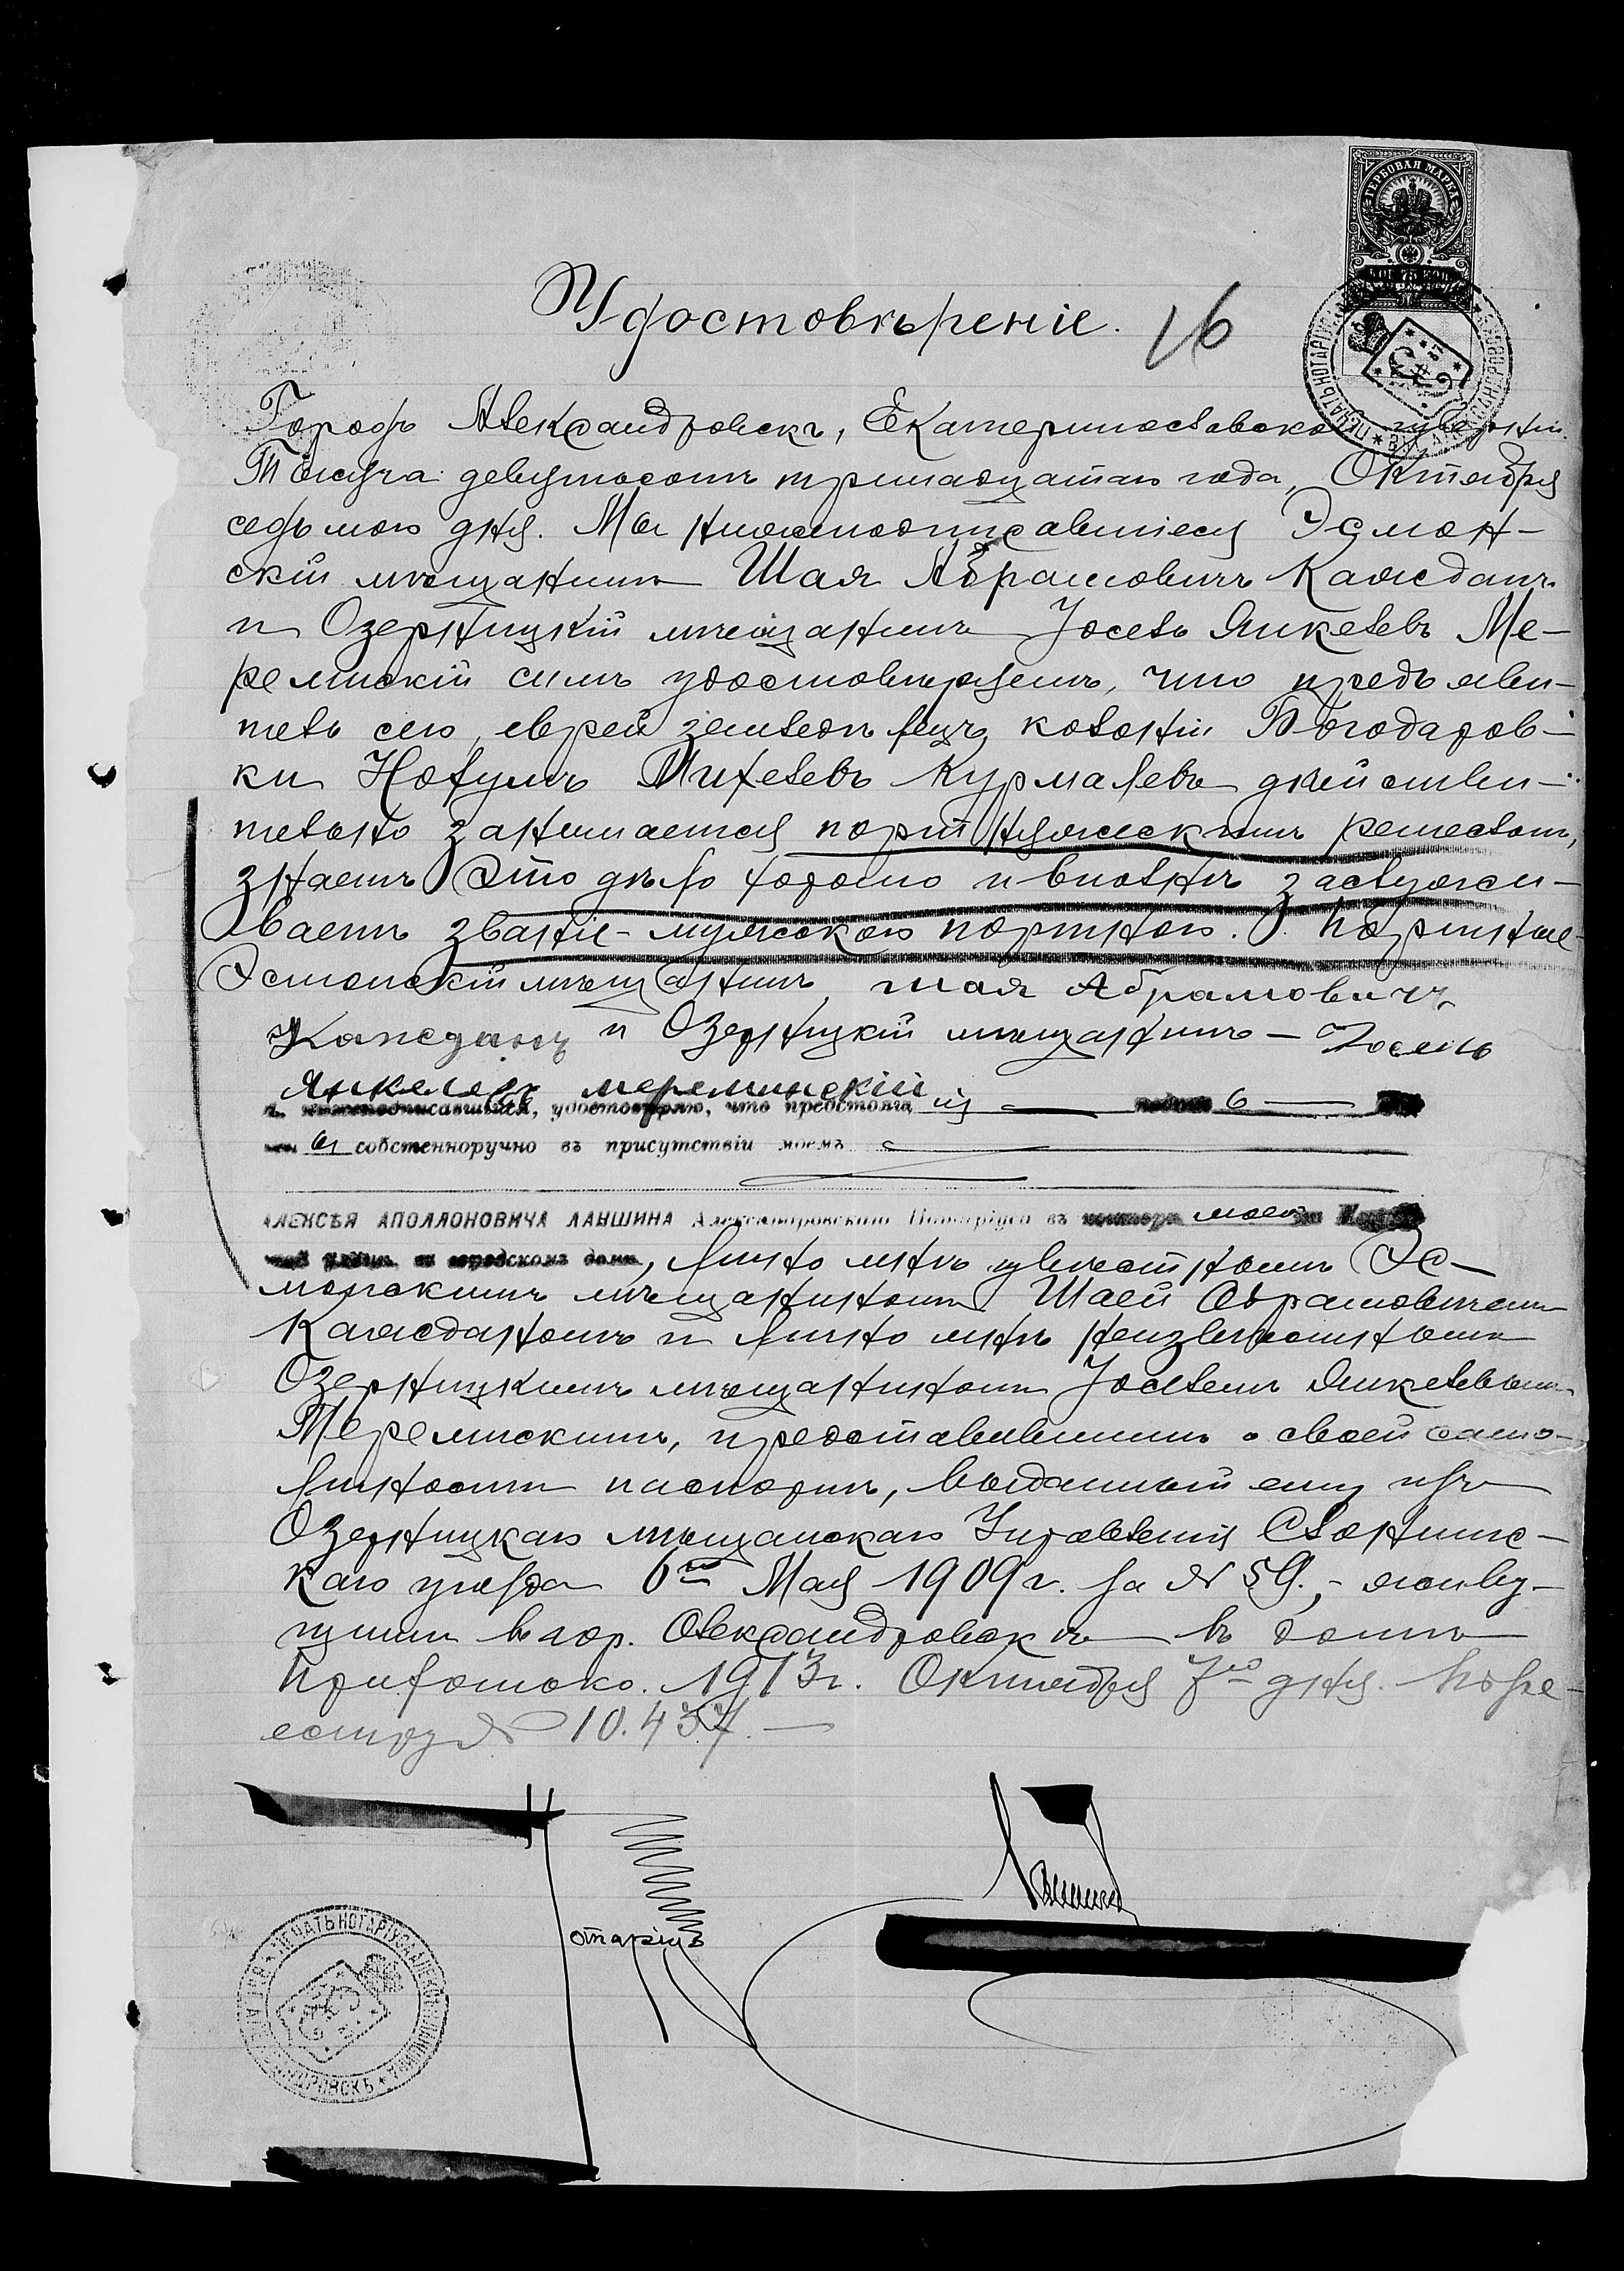 ГЕРБОВАЯ МАРКА
75 КОП.
Удостовѣреніе. 16
Городъ Александровскъ, Екатеринославской губерніи.
Тысяча девятьсотъ тринадцатаго года, Октября
седьмого дня. Мы нижеподписавшіеся Эсмон-
скій мѣщанинъ Шая Абрамовичъ Каждан
и Озерницкій мѣщанинъ Іосель Янкелевъ Ме-
реминскій симъ удостовѣряемъ, что предъяви-
тель сего, еврей земледѣлецъ колоніи Богодаров-
ки Нохумъ Михелевъ Курмалевъ дѣйстви-
тельно занимается портняжескимъ ремесломъ,
знаетъ это дѣло хорошо и вполнѣ заслужи-
ваетъ званіе мужского портного. Портные
Эсмонскій мѣщанинъ, шая Абрамовичъ
Кажданъ и Озерницкій мѣщанинъ – Іосель
Янкелевъ мереминскій
я, нижеподписавшійся, удостовѣряю, что предстоящія подписи
ны собственноручно въ присутствіи моемъ
АЛЕКСѢЯ АПОЛЛОНОВИЧА ЛАНШИНА Александровскаго Нотаріуса въ конторѣ моей
въ городскомъ домѣ, лично мнѣ извѣстнымъ Эс-
монскимъ мѣщаниномъ Шаей Абрамовичемъ
Кажданомъ и лично мнѣ неизвѣстнымъ
Озерницкимъ мѣщаниномъ Іоселемъ Янкелевымъ
Мереминскимъ, представившимъ о своей само-
личности паспортъ, выданный ему изъ
Озерницкаго мѣщанскаго Управленія Слонимс-
каго уѣзда 6го Мая 1909 г. за № 59., – живу-
щими въ гор. Александровскѣ въ домѣ
1913 г. Октября 7го дня. По ре-
естру № 10.437. –
Нотаріусъ Ланшинъ
ПЕЧАТЬ НОТАРІУСА